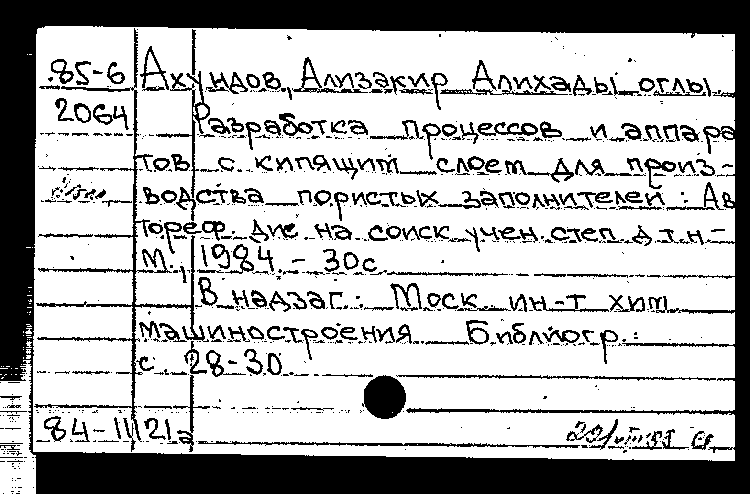 85-6 Ахундов, Ализакир Алихады оглы
2064 Разработка процессов и аппара
тов с кипящим слоем для произ-
водства пористых заполнителей : Ав
тореф. дис на соиск учен. степ д.т.н -
М., 1984. - 30с.
В надзаг.: Моск. ин-т хим
машиностроения Библиогр.:
с. 28-30.
84-11121а